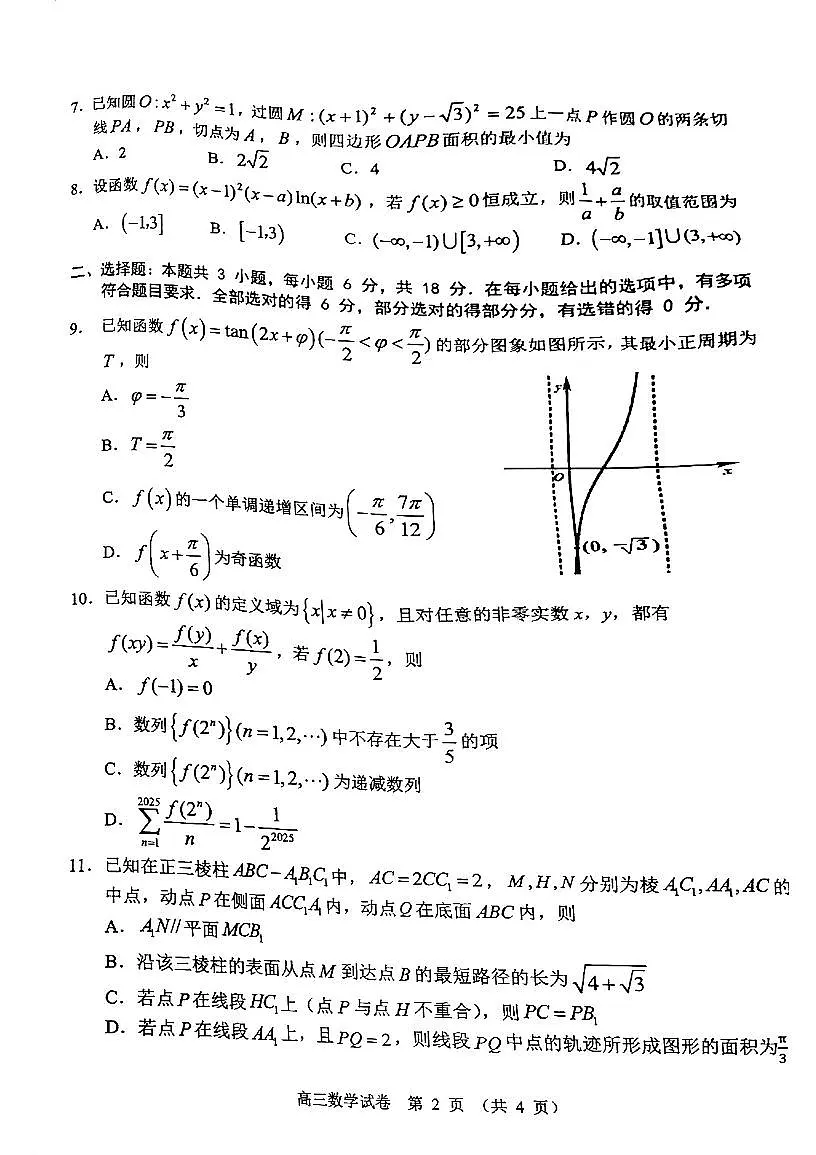 7. 已知圆O:x²+y²=1，过圆M:(x+1)²+(y-√3)²=25上一点P作圆O的两条切
线PA，PB，切点为A，B，则四边形OAPB面积的最小值为
A. 2 B. 2√2 C. 4 D. 4√2
8. 设函数f(x)=(x-1)²(x-a)ln(x+b)，若f(x)≥0恒成立，则1/a+a/b的取值范围为
A. (-1,3] B. [-1,3) C. (-∞,-1)∪[3,+∞) D. (-∞,-1]∪(3,+∞)
二、选择题：本题共 3 小题，每小题 6 分，共 18 分．在每小题给出的选项中，有多项
符合题目要求．全部选对的得 6 分，部分选对的得部分分，有选错的得 0 分．
9. 已知函数f(x)=tan(2x+φ)(-π/2<φ<π/2)的部分图象如图所示，其最小正周期为
T，则
A. φ=-π/3
B. T=π/2
C. f(x)的一个单调递增区间为(-π/6,7π/12)
D. f(x+π/6)为奇函数
y
O
x
(0, -√3)
10. 已知函数f(x)的定义域为{x|x≠0}，且对任意的非零实数x，y，都有
f(xy)=f(y)/x+f(x)/y，若f(2)=1/2，则
A. f(-1)=0
B. 数列{f(2ⁿ)}(n=1,2,…)中不存在大于3/5的项
C. 数列{f(2ⁿ)}(n=1,2,…)为递减数列
D. ∑_{n=1}^{2025} f(2ⁿ)/n=1-1/2^{2025}
11. 已知在正三棱柱ABC-A₁B₁C₁中，AC=2CC₁=2，M,H,N分别为棱A₁C₁,AA₁,AC的
中点，动点P在侧面ACC₁A₁内，动点Q在底面ABC内，则
A. A₁N//平面MCB₁
B. 沿该三棱柱的表面从点M到达点B的最短路径的长为√(4+√3)
C. 若点P在线段HC₁上（点P与点H不重合），则PC=PB₁
D. 若点P在线段AA₁上，且PQ=2，则线段PQ中点的轨迹所形成图形的面积为π/3
高三数学试卷 第 2 页 （共 4 页）